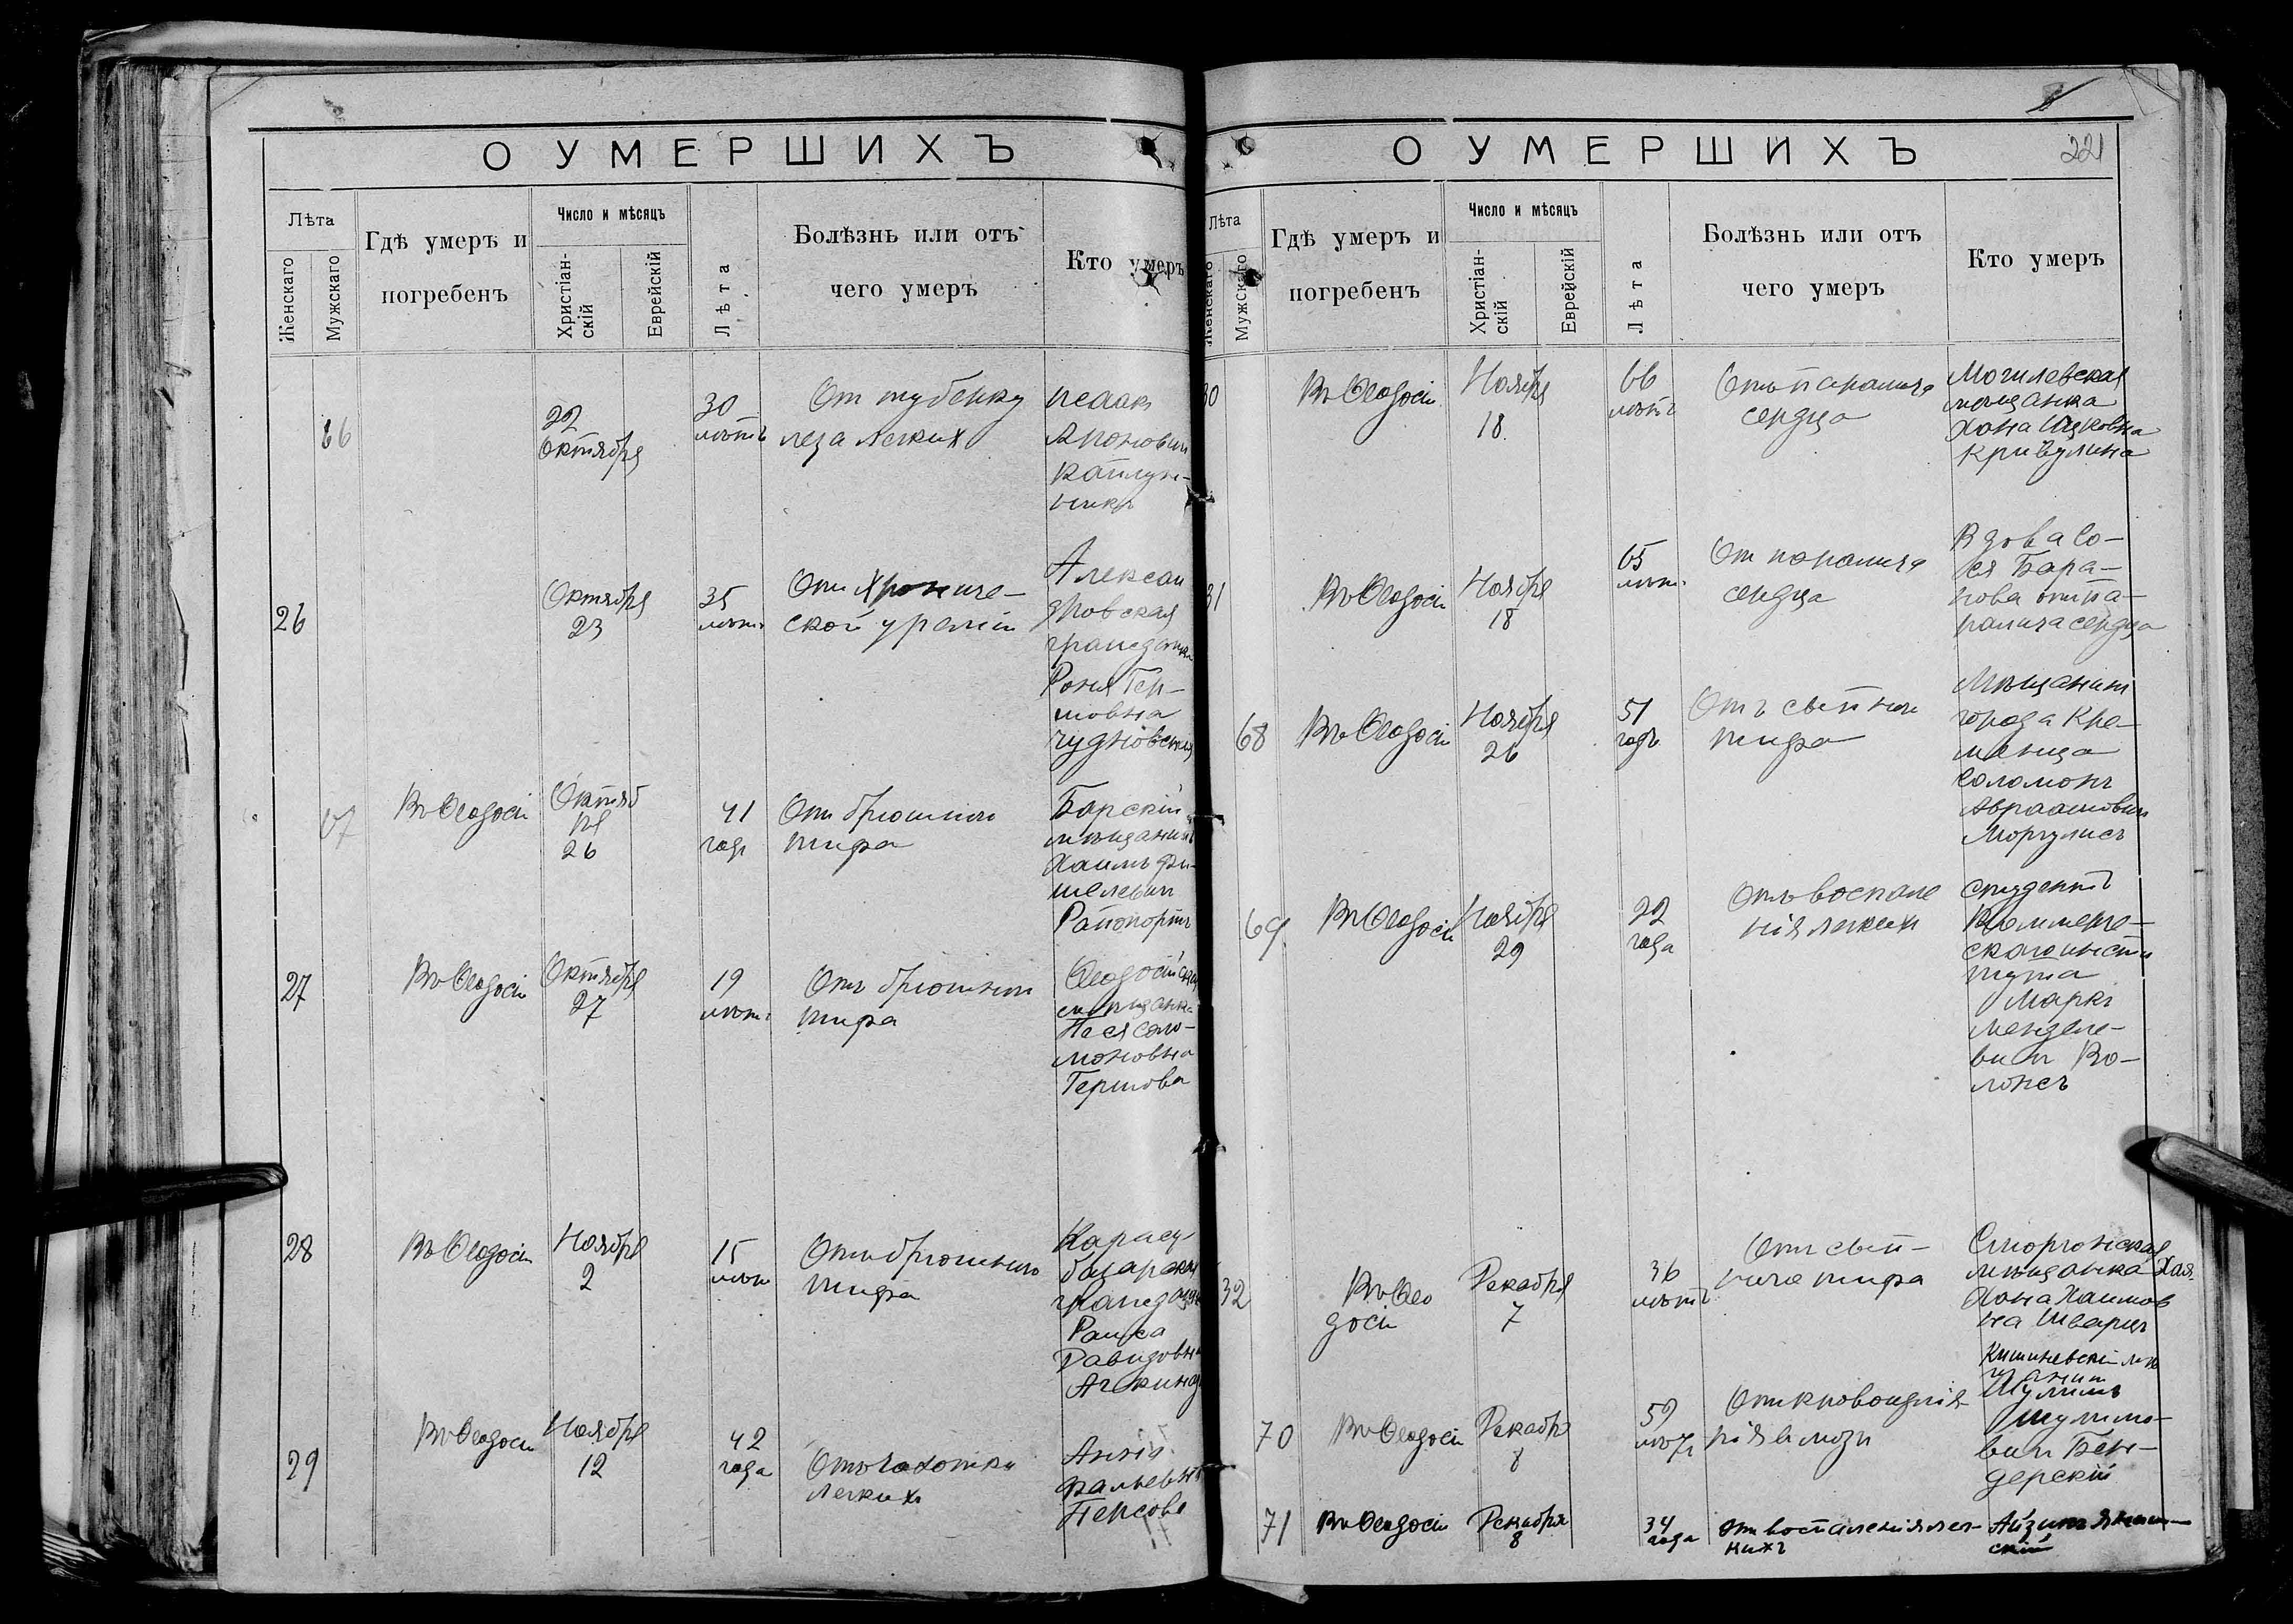 О УМЕРШИХЪ
Лѣта
Женскаго
Мужскаго
Гдѣ умеръ и
погребенъ
Число и мѣсяцъ
Христіан-
скій
Еврейскій
Лѣта
Болѣзнь или отъ
чего умеръ
Кто умеръ
66
22
Октября
30
лѣтъ
От туберку
леза легких
Исаак
Аронович
Каплун-
26
Октября
23
35
лѣтъ
От хрониче-
ской уреміи
Алексан
дровская
гражданка
Роня Гер-
шовна
Чудновская
67
Въ Ѳеодосіи
Октяб
ря
26
41
годъ
От брюшного
тифа
Барскій
мѣщанинъ
Хаимъ Фи-
шелевич
Рапопортъ
27
Въ Ѳеодосіи
Октября
27
19
лѣтъ
Отъ брюшного
тифа
Ѳеодосійская
мѣщанка
Неся Соло-
моновна
Гершова
28
Въ Ѳеодосіи
Ноября
2
15
лѣтъ
От брюшного
тифа
Карасу-
базарская
гражданка
Раиса
Давидовна
Ачкинадзе
29
Въ Ѳеодосіи
Ноября
12
42
года
Отъ чахотки
легкихъ
Персова
О УМЕРШИХЪ
221
Лѣта
Женскаго
Мужскаго
Гдѣ умеръ и
погребенъ
Число и мѣсяцъ
Христіан-
скій
Еврейскій
Лѣта
Болѣзнь или отъ
чего умеръ
Кто умеръ
30
Въ Ѳеодосіи
Ноября
18
66
лѣтъ
Отъ паралича
сердца
Могилевская
мѣщанка
Хана Ицковна
Кривулина
31
Въ Ѳеодосіи
Ноября
18
65
лѣтъ
От паралича
сердца
Вдова Со-
ся Бара-
нова от па-
ралича сердца
68
Въ Ѳеодосіи
Ноября
26
51
годъ
Отъ сыпного
тифа
Мѣщанин
города Кре-
менца
Соломонъ
Авраамович
Моргулисъ
69
Въ Ѳеодосіи
Ноября
29
22
года
Отъ воспале
нія легкихъ
Студентъ
Коммерче-
скаго инсти
тута
Маркъ
Менделе-
вич Во-
лонсъ
32
Въ Ѳео
досіи
Декабря
7
36
лѣтъ
Отъ сып-
ного тифа
Сморгонская
мѣщанка Хая-
Хана Хаимов
на Шварцъ
70
Въ Ѳеодосіи
Декабря
8
59
лѣтъ
От кровоизлія-
нія в мозгъ
Кишиневскій мѣ
щанин
Шулимъ
Шулимо-
вич Бен-
дерскій
71
Въ Ѳеодосіи
Декабря
8
34
года
От воспаленія лег-
кихъ